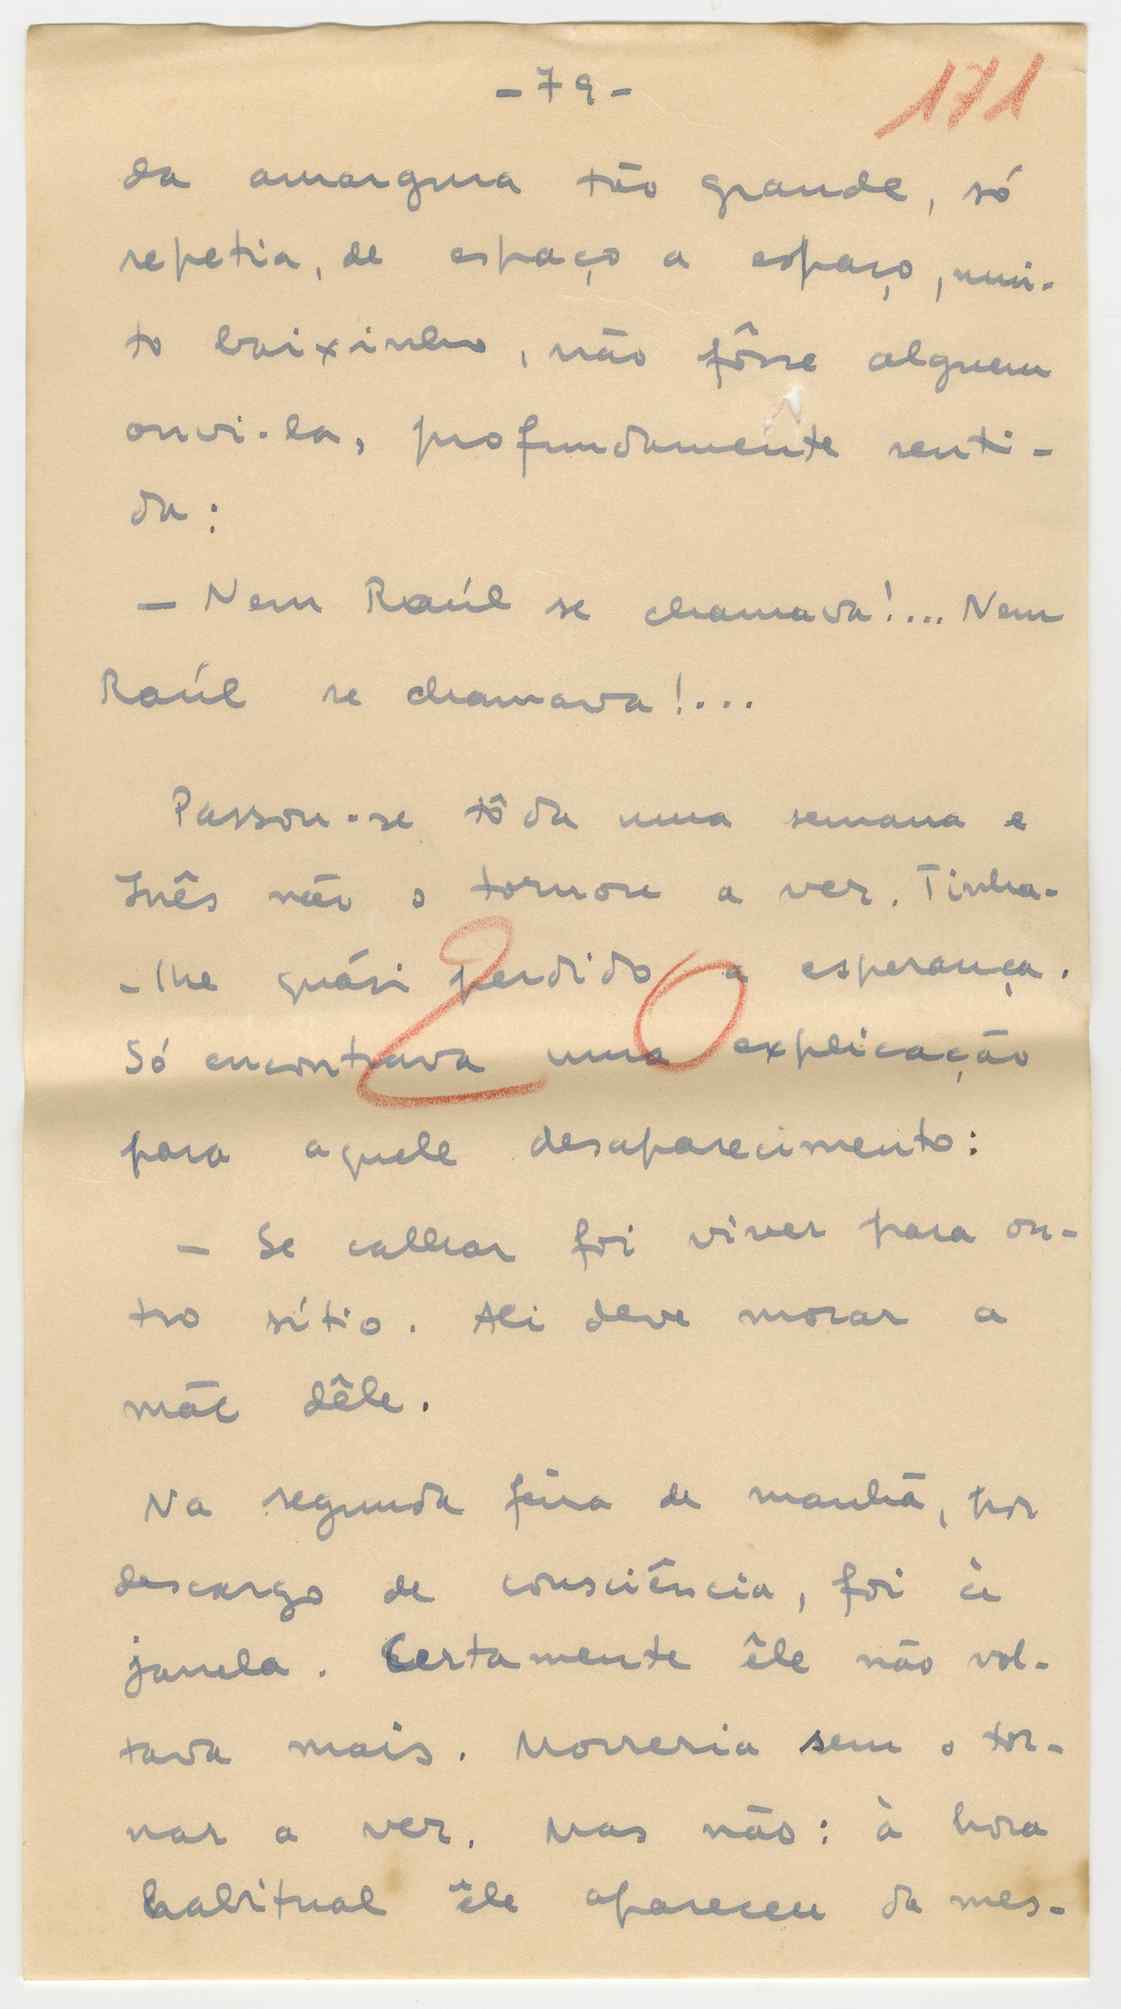 - 79 -
171
da amargura tão grande, só
repetia, de espaço a espaço, mui-
to baixinho, não fôsse alguem
ouvi-la, profundamente senti-
da:
— Nem Raúl se chamava!... Nem
Raúl se chamava!...
Passou-se tôda uma semana e
Inês não o tornou a ver. Tinha-
-lhe quási perdido a esperança.
20
Só encontrava uma explicação
para aquele desaparecimento:
— Se calhar foi viver para ou-
tro sítio. Ali deve morar a
mãe dêle.
Na segunda feira de manhã, por
descargo de consciência, foi à
janela. Certamente êle não vol-
tava mais. Morreria sem o tor-
nar a ver. Mas não: à hora
habitual êle apareceu da mes-